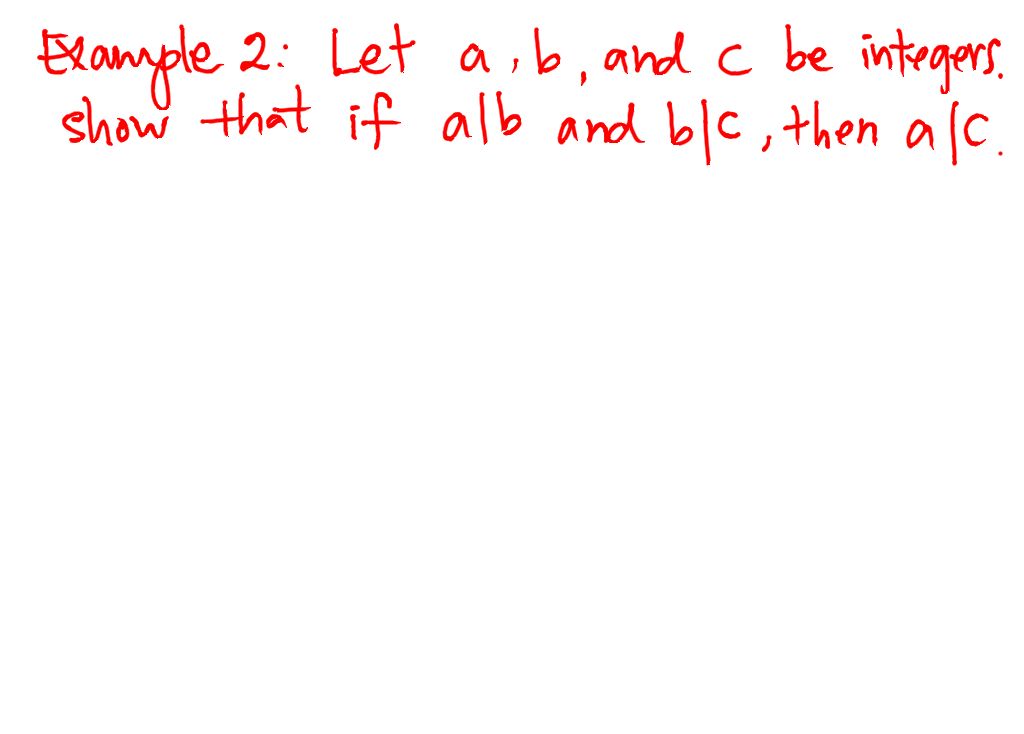 Example 2: Let a, b, and c be integers.
show that if a|b and b|c, then a|c.